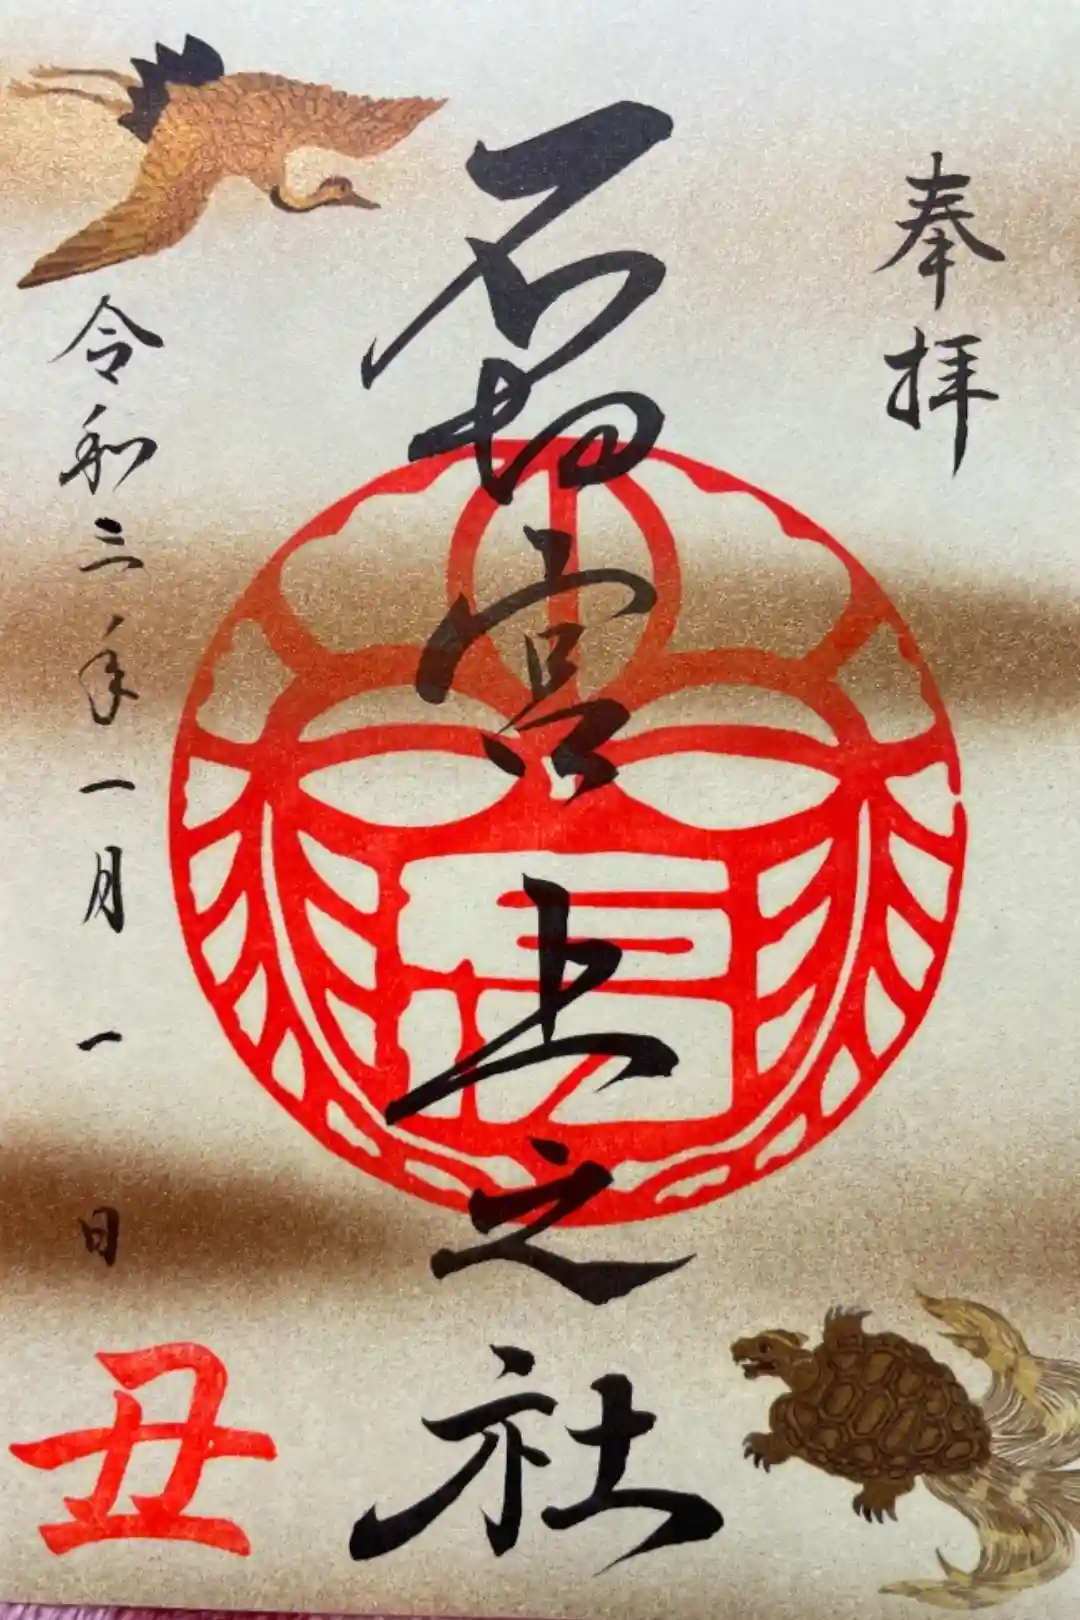 奉拝
石切宮上之社
令和三年一月一日
丑